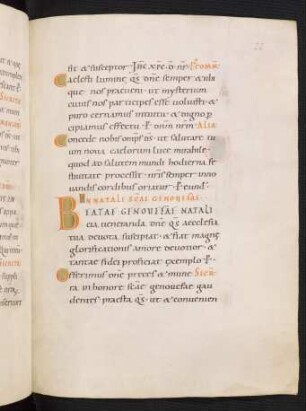 sit & susceptor. Ihc xpc. d. nr. Comm
Caelesti lumine qs dne semper & ubi
que nos praeueni. ut mysterium
cuius nos participes esse uoluisti. &
puro cernamus intuitu. & digno p
cipiamus effectu. p. dnm nrm. Alia
Concede nobis omps ds. ut salutare tu
um noua caelorum luce mirabile.
quod ad salutem mundi hodierna fe
stiuitate processit. nris semper inno
uandis cordibus oriatur. p. eund.
IN NATALI SCAE GENOUEFAE.
BEATAE GENOUEFAE NATALI
CIA ueneranda. dne qs. aecclesia
tua deuota suscipiat. & fiat magne
glorificationis amore deuotior. &
tantae fidei proficiat exemplo. p.
Offerimus dne preces & mune Secr
ra in honore scae genouefae gau
dentes. praesta qs. ut & conuenien